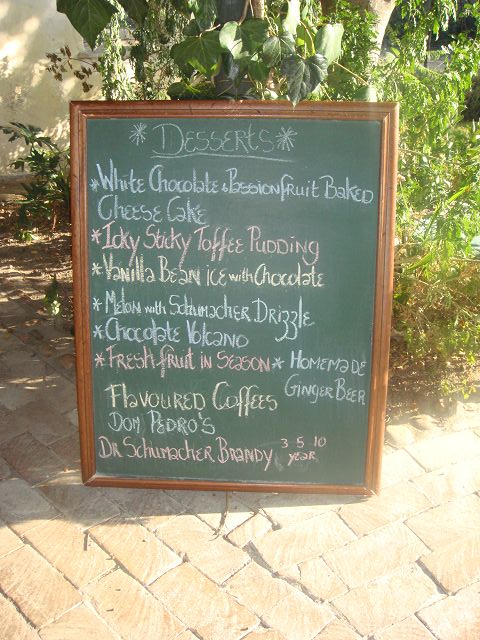 * Desserts *
* White Chocolate & Passion fruit Baked
Cheese Cake
* Icky Sticky Toffee Pudding
* Vanilla Bean ice with Chocolate
* Melon with Schumacher Drizzle
* Chocolate Volcano
* Fresh fruit in Season * Homemade
Ginger Beer
Flavoured Coffees
Dom Pedro's
Dr Schumacher Brandy 3 5 10
year